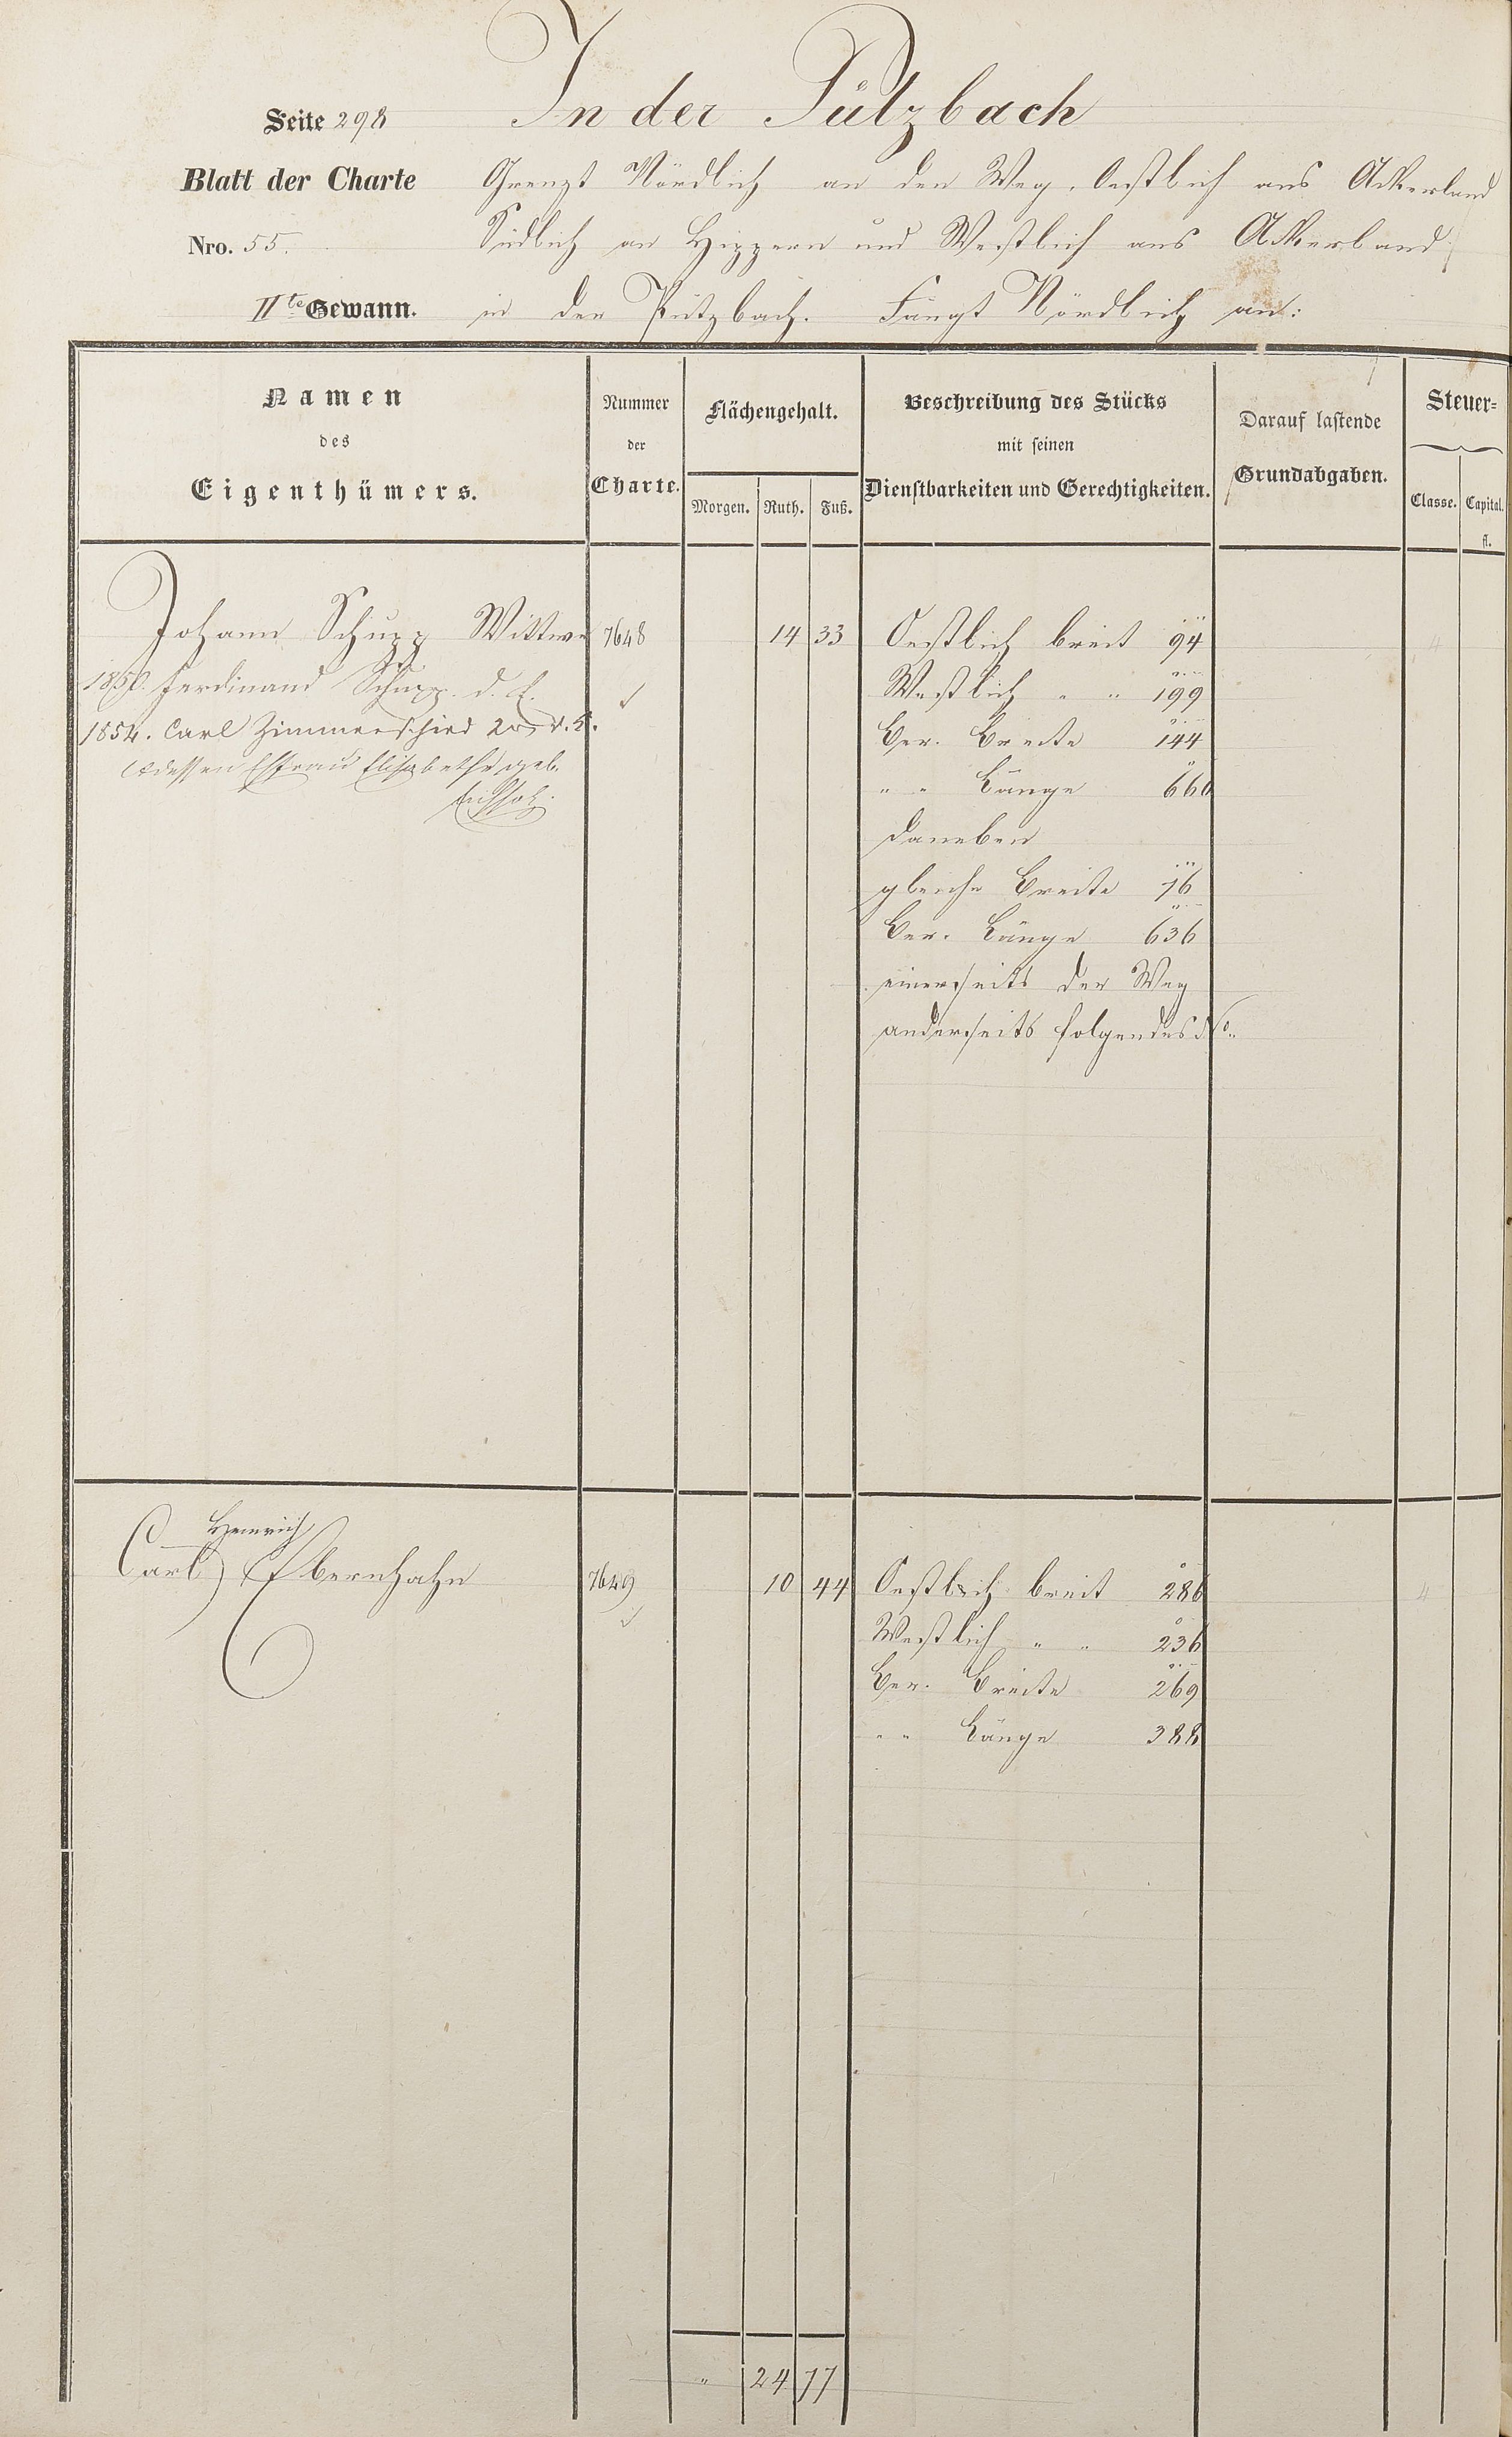 In der Pützbach
Seite 298
Blatt der Charte Grenzt Nördlich an den Weg, Oestlich ans Ackerland
Nro. 55. Südlich an Hippern und Westlich ans Ackerland
IIte Gewann. in der Pützbach. Fängt Nördlich an:
Namen des Eigenthümers.
Nummer der Charte.
Flächengehalt.
Morgen. Ruth. Fuß.
Beschreibung des Stücks mit seinen Dienstbarkeiten und Gerechtigkeiten.
Darauf lastende Grundabgaben.
Steuer-
Classe. Capital. fl.
Johann Schupp Wittwe 7648 14 33 Oestlich breit 94 4
1850. Ferdinand Schupp d. E. Westlich " " 199
1854. Carl Zimmerschied 2r d. E. Ber. Breite 144
& dessen Ehfrau Elisabethe geb. " " Länge 660
daneben
gleiche Breite 76
Ber. Länge 636
einerseits der Weg
anderseits folgendes No.
Heinrich
Carl Ebernhahn 7649 10 44 Oestlich breit 286 4
Westlich " " 236
Ber. Breite 269
" " Länge 388
" 24 77